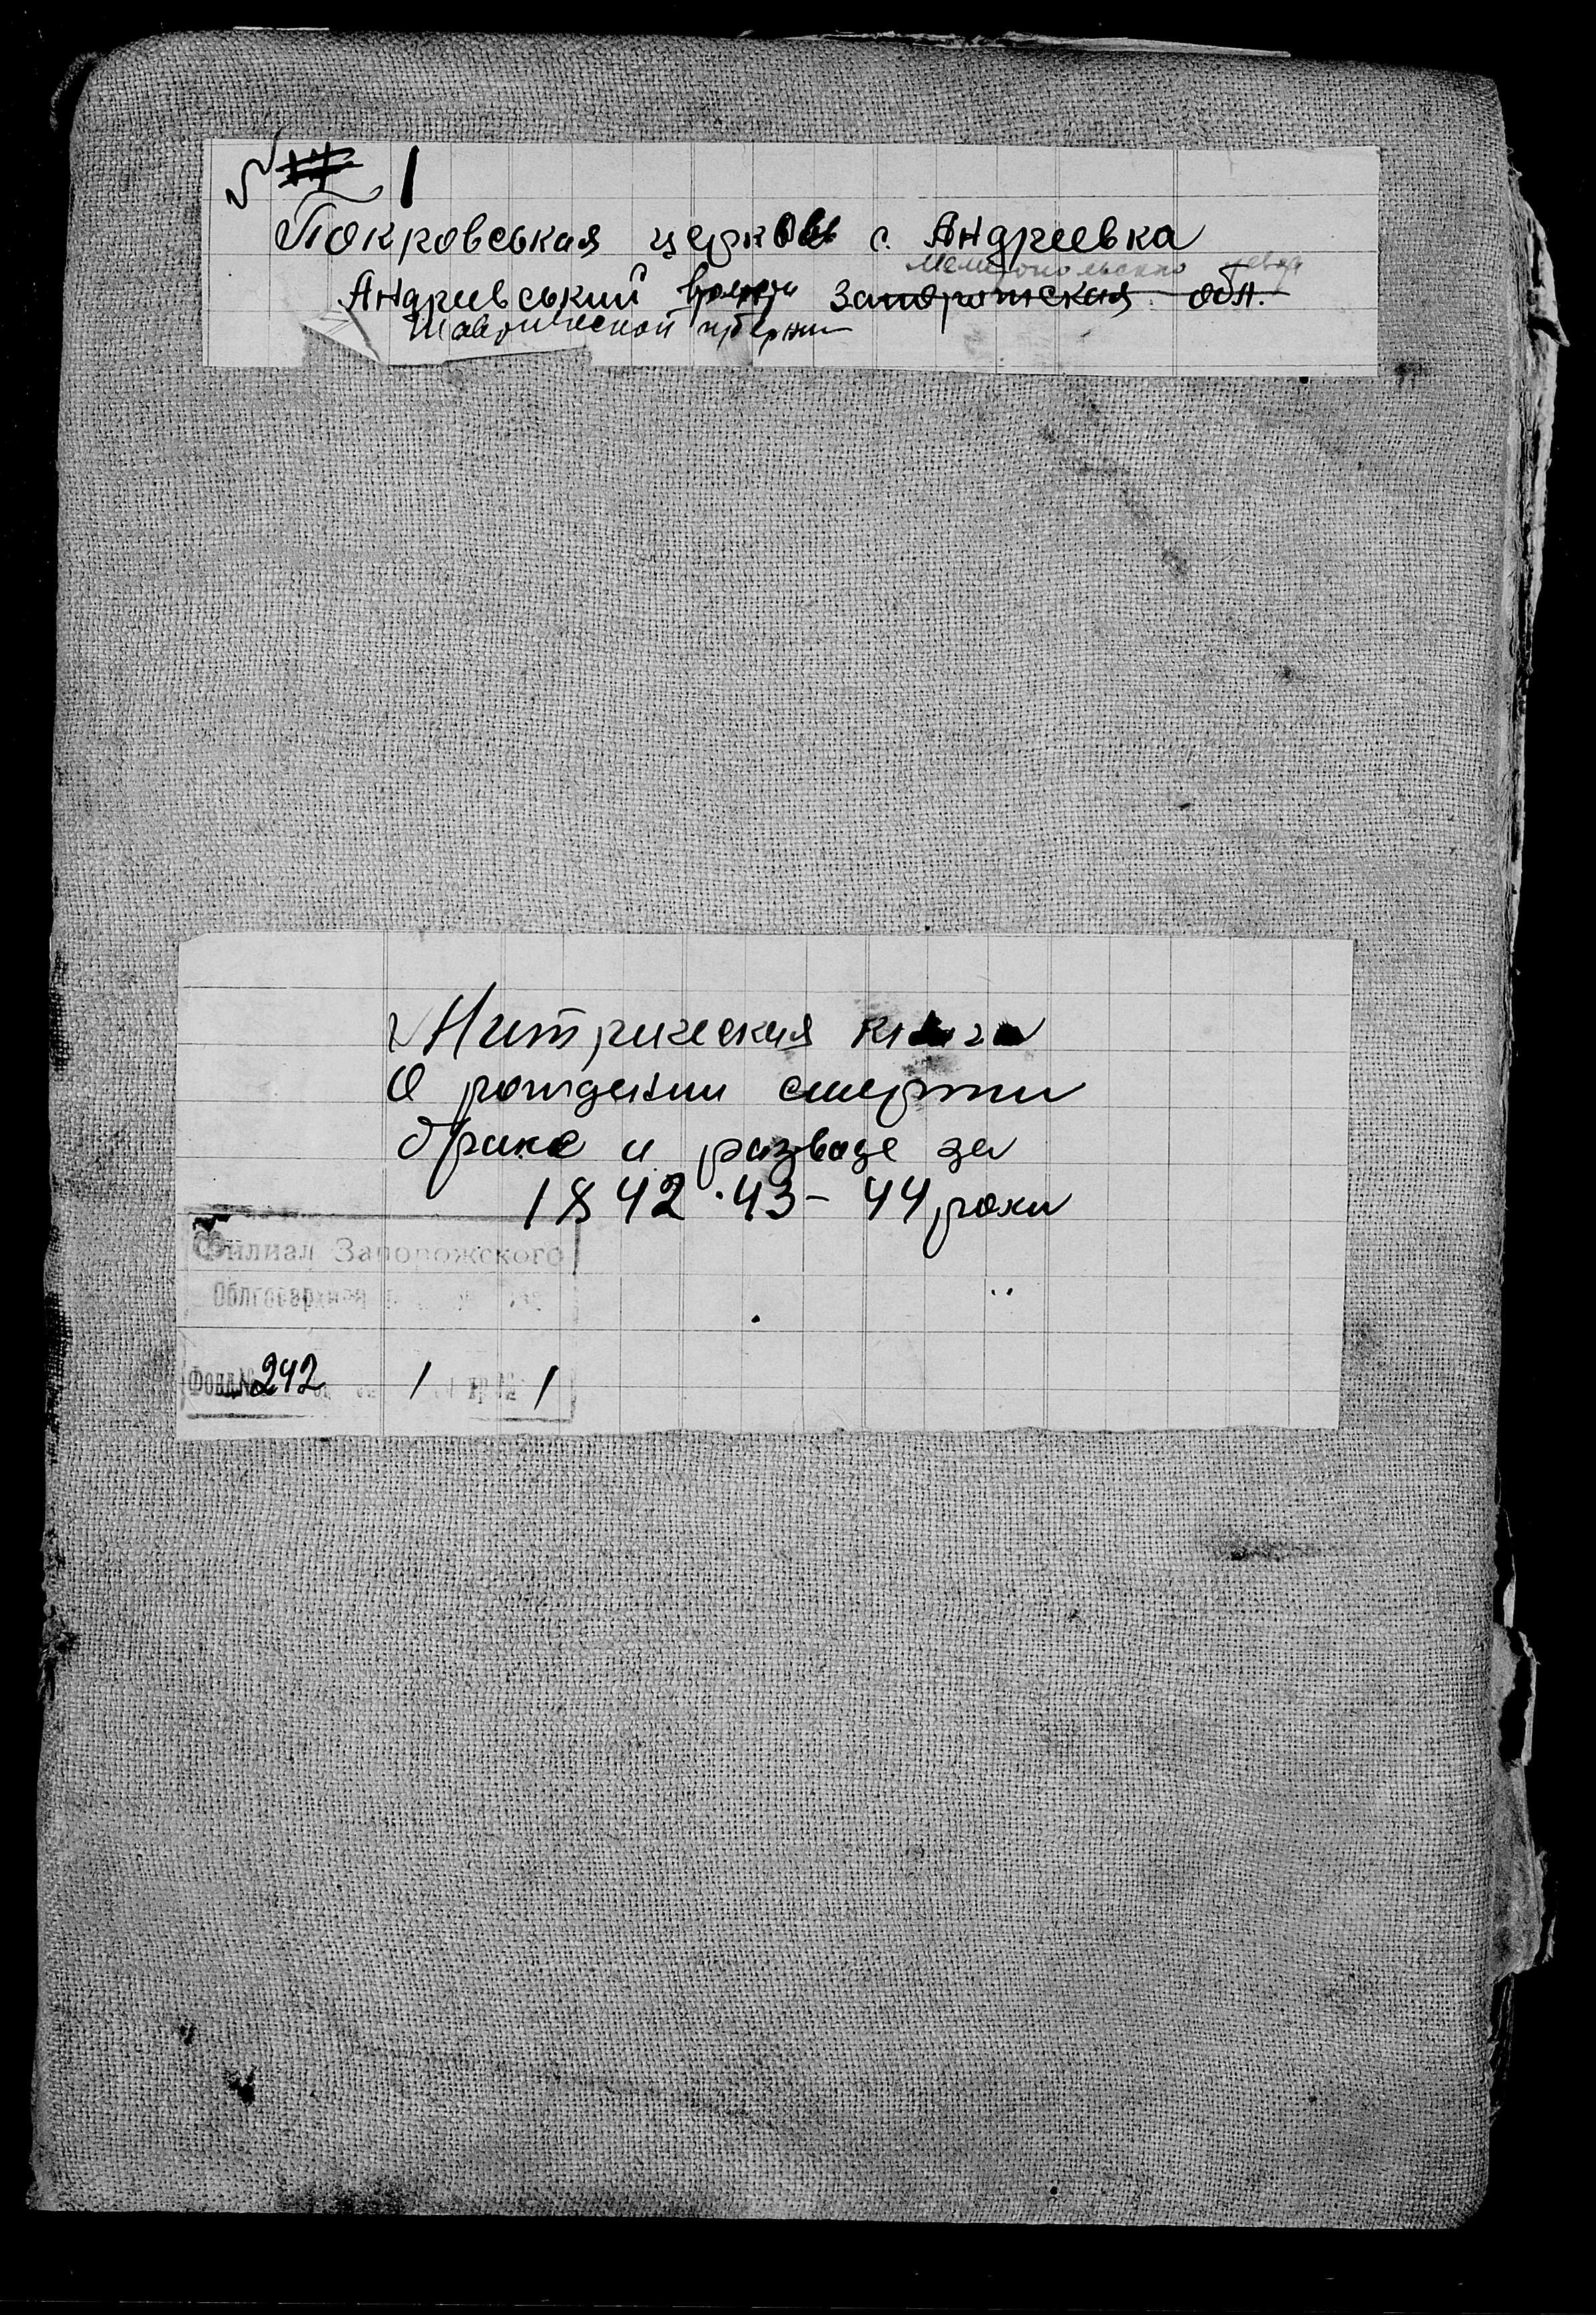 № 1
Покровськая церковь с. Андреевка
Мелитопольского уезда
Андреевський волости Запорожская обл.
Таврической губернии
Митрическая книга
О рождении смерти
браке и разводе за
1842·43-44 роки
Филиал Запорожского
Облгосархива
Фонд № 242 1 1